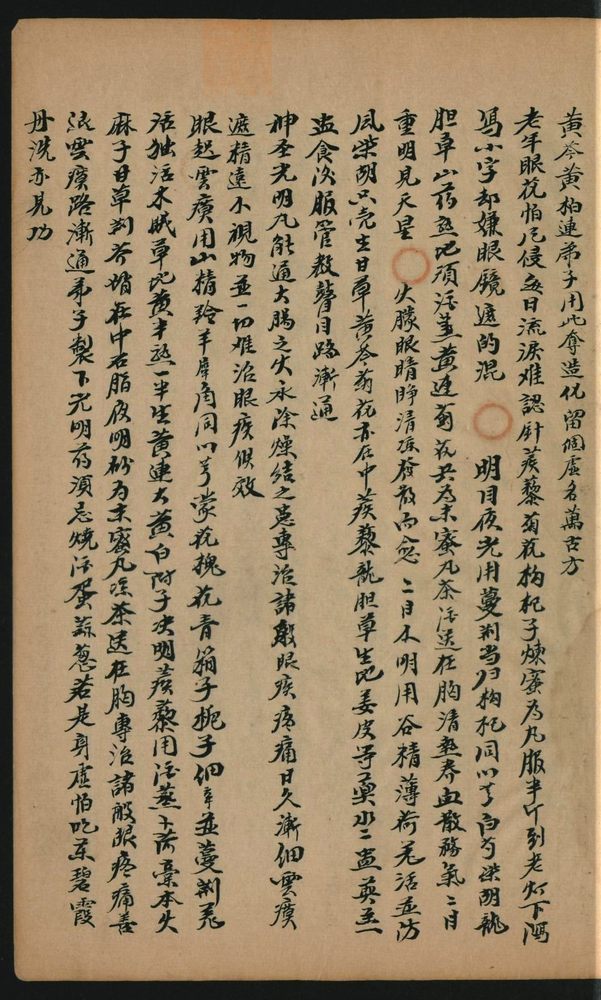 黄芩黄柏連弟子用此奪造化留個虛名萬古方
老年眼花怕尼侵每日流淚难認針蒺藜菊花枸杞子煉蜜為丸服半斤到老灯下
寫小字却嫌眼鏡遮的混 明目夜光用蔓荆当归枸杞同川芎白芍柴胡龍
胆草山药熟地須活羌黄連菊花共為末蜜丸茶活送在胸清熱养血散務氣二目
重明見天星 火朦眼睛睁清凉發散而愈二目不明用谷精薄荷羌活並防
風柴胡只壳生甘草黄芩菊花亦在中蒺藜龍胆草生地姜皮等奠水二盅英至一
盅食次服管教瞽目路漸通
神圣光明丸能通大腸之火永除燥結之患專治諸般眼疾疼痛日久漸個雲瘼
遮精遠不視物並一切难治眼疾俱效
眼起雲瘼用山精羚羊犀角同川芎蒙花槐花青箱子栀子细辛並蔓荆羌
活独活木贼草地黄半熟一半生黄連大黄白附子决明蒺藜用活蒸卜荷藁本火
麻子甘草荆芥揩在中石脂夜明砂为末蜜丸凉茶送在胸專治諸般眼疼痛善
派雲瘼路漸通弟子製下光明药須忌燒活蛋蒜葱若是身虛怕吃药碧霞
丹洗亦見功